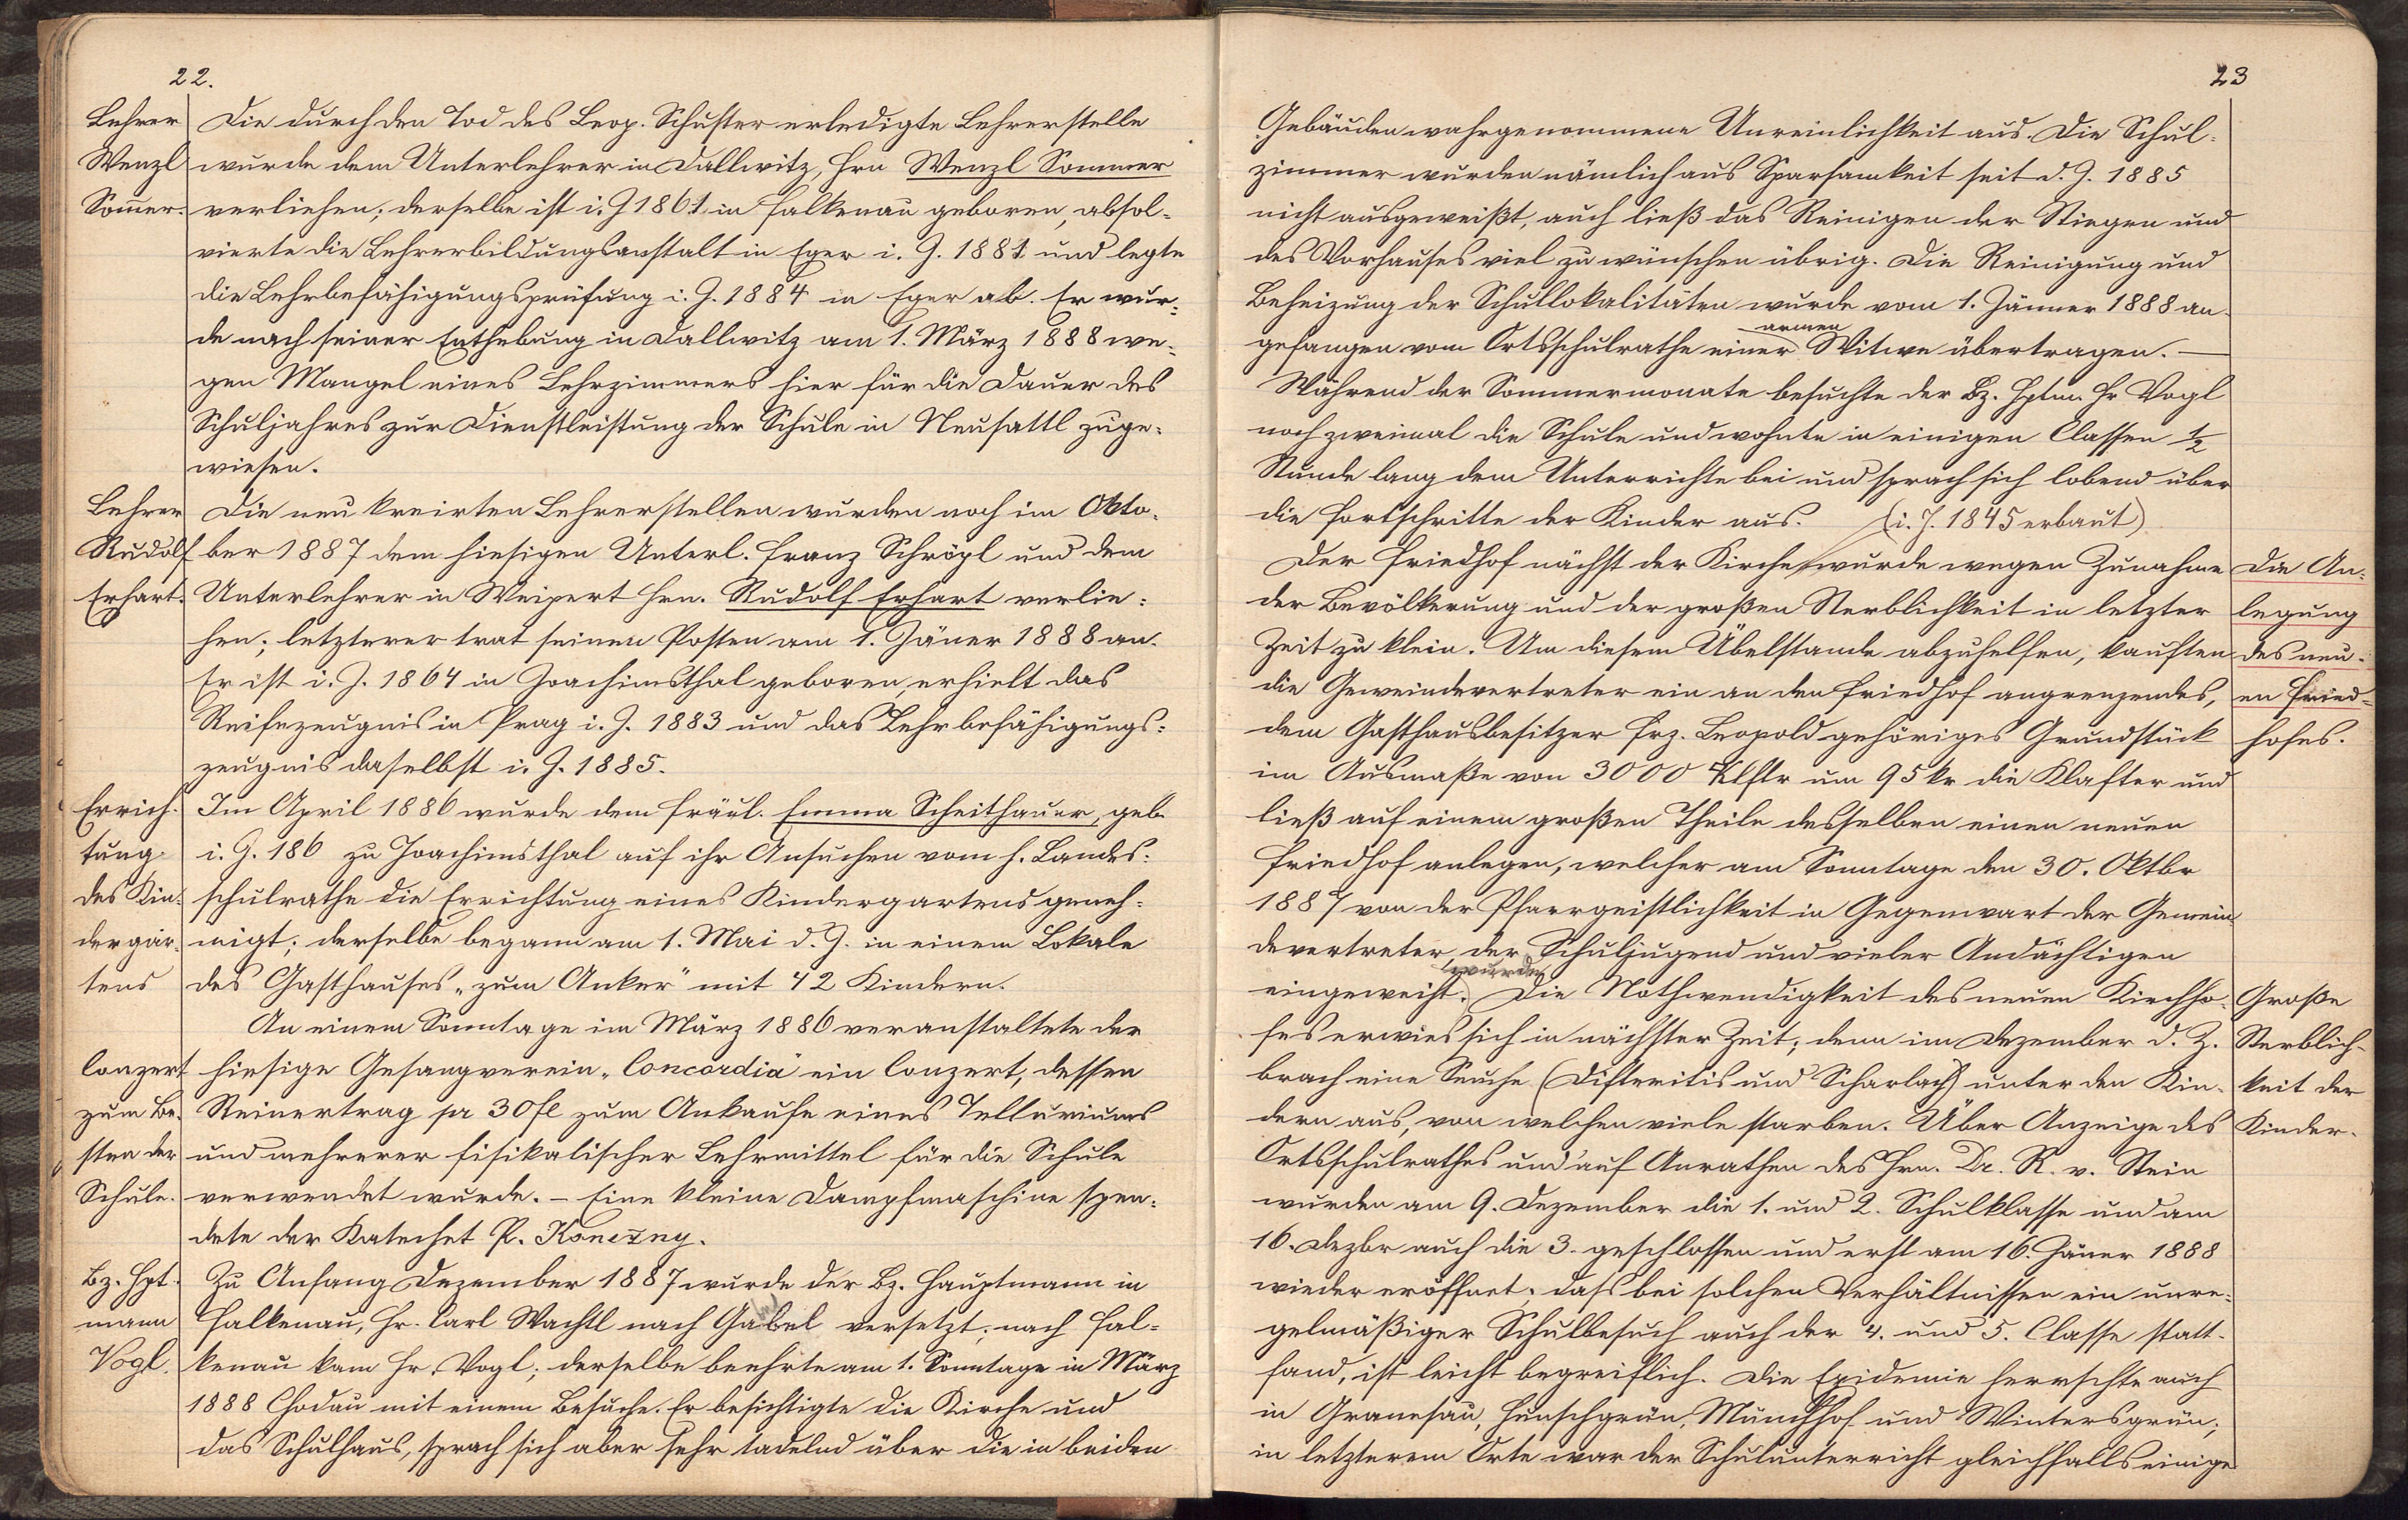 22.
Lehrer
Wenzl
Som̄er.
Die durch den Tod des Leop. Schuster erledigte Lehrerstelle
wurde dem Unterlehrer in Dallwitz, Hrn Wenzl Sommer
verliehen; derselbe ist i. J 1861 in Falkenau geboren, absol-
vierte die Lehrerbildungsanstalt in Eger i. J. 1881 und legte
die Lehrbefähigungsprüfung i. J. 1884 in Eger ab. Er wur-
de nach seiner Enthebung in Dallwitz am 1. März 1888 we-
gen Mangel eines Lehrzimmers hier für die Dauer des
Schuljahres zur Dienstleistung der Schule in Neusattl zuge-
wiesen.
Lehrer
Rudolf
Erhart.
Die neu kreirten Lehrerstellen wurden noch im Okto-
ber 1887 dem hiesigen Unterl. Franz Schrögl und dem
Unterlehrer in Weipert Hrn. Rudolf Erhart verlie-
hen; letzterer trat seinen Posten am 1. Jäner 1888 an.
Er ist i. J. 1864 in Joachimsthal geboren, erhielt das
Reifezeugnis in Prag i. J. 1883 und das Lehrbefähigungs-
zeugnis daselbst i. J. 1885.
Errich-
tung
des Kin-
dergar-
tens
Im April 1886 wurde dem Fräul. Emma Scheithauer, geb.
i. J. 186 zu Joachimsthal auf ihr Ansuchen vom h. Landes-
schulrathe die Errichtung eines Kindergartens geneh-
migt; derselbe begann am 1. Mai d. J. in einem Lokale
des Gasthauses „zum Anker" mit 42 Kindern.
An einem Sonntage im März 1886 veranstaltete der
Conzert
zum Be-
sten der
Schule.
hiesige Gesangverein „Concordia" ein Conzert, dessen
Reinertrag pr 30 fl zum Ankaufe eines Telluriums
und mehrerer fisikalischer Lehrmittel für die Schule
verwendet wurde. – Eine kleine Dampfmaschine spen-
dete der Katechet P. Konezny.
Bz. Hpt-
mann
Vogl.
Zu Anfang Dezember 1887 wurde der Bz. Hauptmann in
Falkenau, Hr. Carl Wachtl nach Gabel versetzt; nach Fal-
kenau kam Hr. Vogl; derselbe beehrte am 1. Sonntage in März
1888 Chodau mit einem Besuche. Er besichtigte die Kirche und
das Schulhaus, sprach sich aber sehr tadelnd über die in beiden
23
Gebäuden wahrgenommene Unreinlichkeit aus. Die Schul-
zimmer wurden nämlich aus Sparsamkeit seit d. J. 1885
nicht ausgeweißt, auch ließ das Reinigen der Stiegen und
des Vorhauses viel zu wünschen übrig. Die Reinigung und
Beheizung der Schullokalitäten wurde vom 1. Jänner 1888 an-
gefangen vom Ortsschulrathe einer armen Witwe übertragen. —
Während der Sommermonate besuchte der Bz. Hptm. Hr Vogl
noch zweimal die Schule und wohnte in einigen Classen ½
Stunde lang dem Unterrichte bei und sprach sich lobend über
die Fortschritte der Kinder aus. (i. J. 1845 erbaut)
Der Friedhof nächst der Kirche wurde wegen Zunahme
der Bevölkerung und der großen Sterblichkeit in letzter
Zeit zu klein. Um diesem Übelstande abzuhelfen, kauften
die Gemeindevertreter ein an den Friedhof angrenzendes,
dem Gasthausbesitzer Frz. Leopold gehöriges Grundstück
im Ausmaße von 3000 Klftr um 95 kr die Klafter und
ließ auf einem großen Theile desselben einen neuen
Friedhof anlegen, welcher am Sonntage den 30. Oktbr
1887 von der Pfarrgeistlichkeit in Gegenwart der Gemein-
devertreter, der Schuljugend und vieler Andächtigen
eingeweiht wurde. Die Nothwendigkeit des neuen Kirchho-
fes erwies sich in nächster Zeit; denn im Dezember d. J.
brach eine Seuche (Difteritis und Scharlach) unter den Kin-
dern aus, von welchen viele starben. Über Anzeige des
Ortsschulrathes und auf Anrathen des Hrn. Dr. R. v. Stein
wurden am 9. Dezember die 1. und 2. Schulklasse und am
16. Dezbr auch die 3. geschlossen und erst am 16. Jäner 1888
wieder eröffnet; daß bei solchen Verhältnissen ein unre-
gelmäßiger Schulbesuch auch der 4. und 5. Classe statt-
fand, ist leicht begreiflich. Die Epidemie herrschte auch
in Granesau, Hunschgrün, Münchhof und Wintersgrün;
in letzterem Orte war der Schulunterricht gleichfalls einige
Die An-
legung
des neu-
en Fried-
hofes.
Große
Sterblich-
keit der
Kinder.